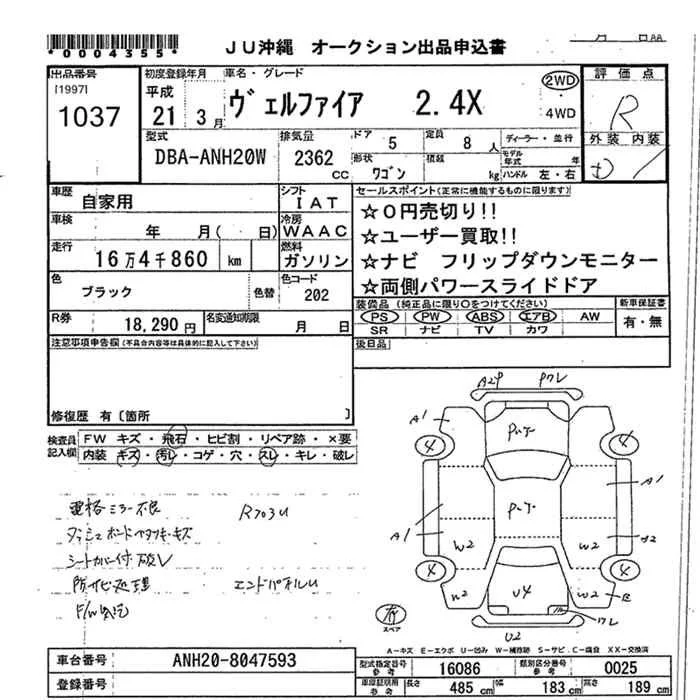 *0004355*
JU沖縄 オークション出品申込書
出品番号
[1997]
1037
初度登録年月
平成
21年 3月
車名・グレード
ヴェルファイア 2.4X
2WD
・
4WD
評価点
R
外装 内装
型式
DBA-ANH20W
排気量
2362 CC
ドア 5
定員 8 人
形状 ワゴン
積載 kg
ディーラー・並行
モデル年式 年
ハンドル 左・右
車歴 自家用
シフト IAT
車検 年 月( 日)
冷房 WAAC
走行 16万4千860 km
燃料 ガソリン
色 ブラック 色替
色コード 202
R券 18,290円
名変通知期限 月 日
セールスポイント(正常に機能するものに限ります)
☆0円売切り!!
☆ユーザー買取!!
☆ナビ フリップダウンモニター
☆両側パワースライドドア
装備品 (純正品に限り○をつけてください)
PS PW ABS エアB AW
SR ナビ TV カワ
新車保証書
有・無
後日品
注意事項申告欄(不具合内容等は具体的に記入して下さい)
修復歴 有〔箇所 〕
検査員記入欄
FW キズ・飛石・ヒビ割・リペア跡・×要
内装 キズ・汚レ・コゲ・穴・スレ・キレ・破レ
電格ミラー不良
ダッシュボード キズ
シートカバー付 破レ
防サビ処理
エンドパネルU
F/W
A1
4
4
A1
A1
A2
W2
W2
4
4
W2
W2
U4
U2
有
スペア
A-キズ E-エクボ U-凹み W-補修跡 S-サビ C-腐食 XX-交換済
車台番号 ANH20-8047593
登録番号
型式指定番号 参考 16086
類別区分番号 参考 0025
車庫証明用 参考 長さ 485 cm 幅 183 cm 高さ 189 cm